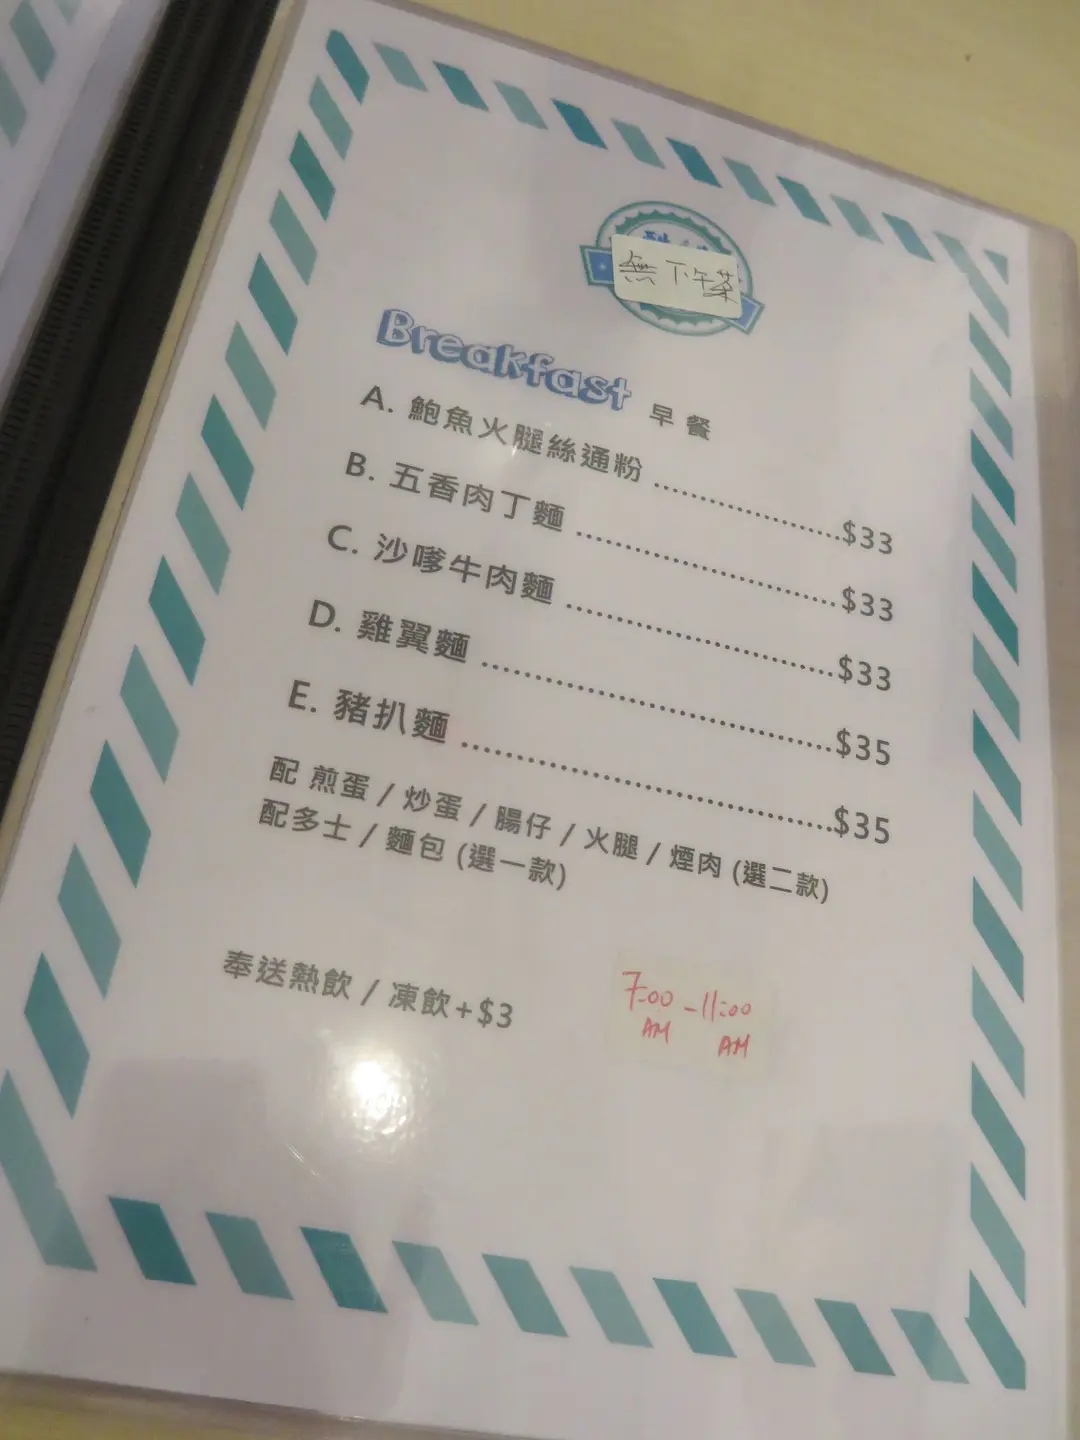 無下午茶
Breakfast 早餐
A. 鮑魚火腿絲通粉 ....................$33
B. 五香肉丁麵 ............................$33
C. 沙嗲牛肉麵 ............................$33
D. 雞翼麵 ....................................$35
E. 豬扒麵 ......................................$35
配 煎蛋 / 炒蛋 / 腸仔 / 火腿 / 煙肉 (選二款)
配多士 / 麵包 (選一款)
奉送熱飲 / 凍飲+$3
7:00 - 11:00
AM AM